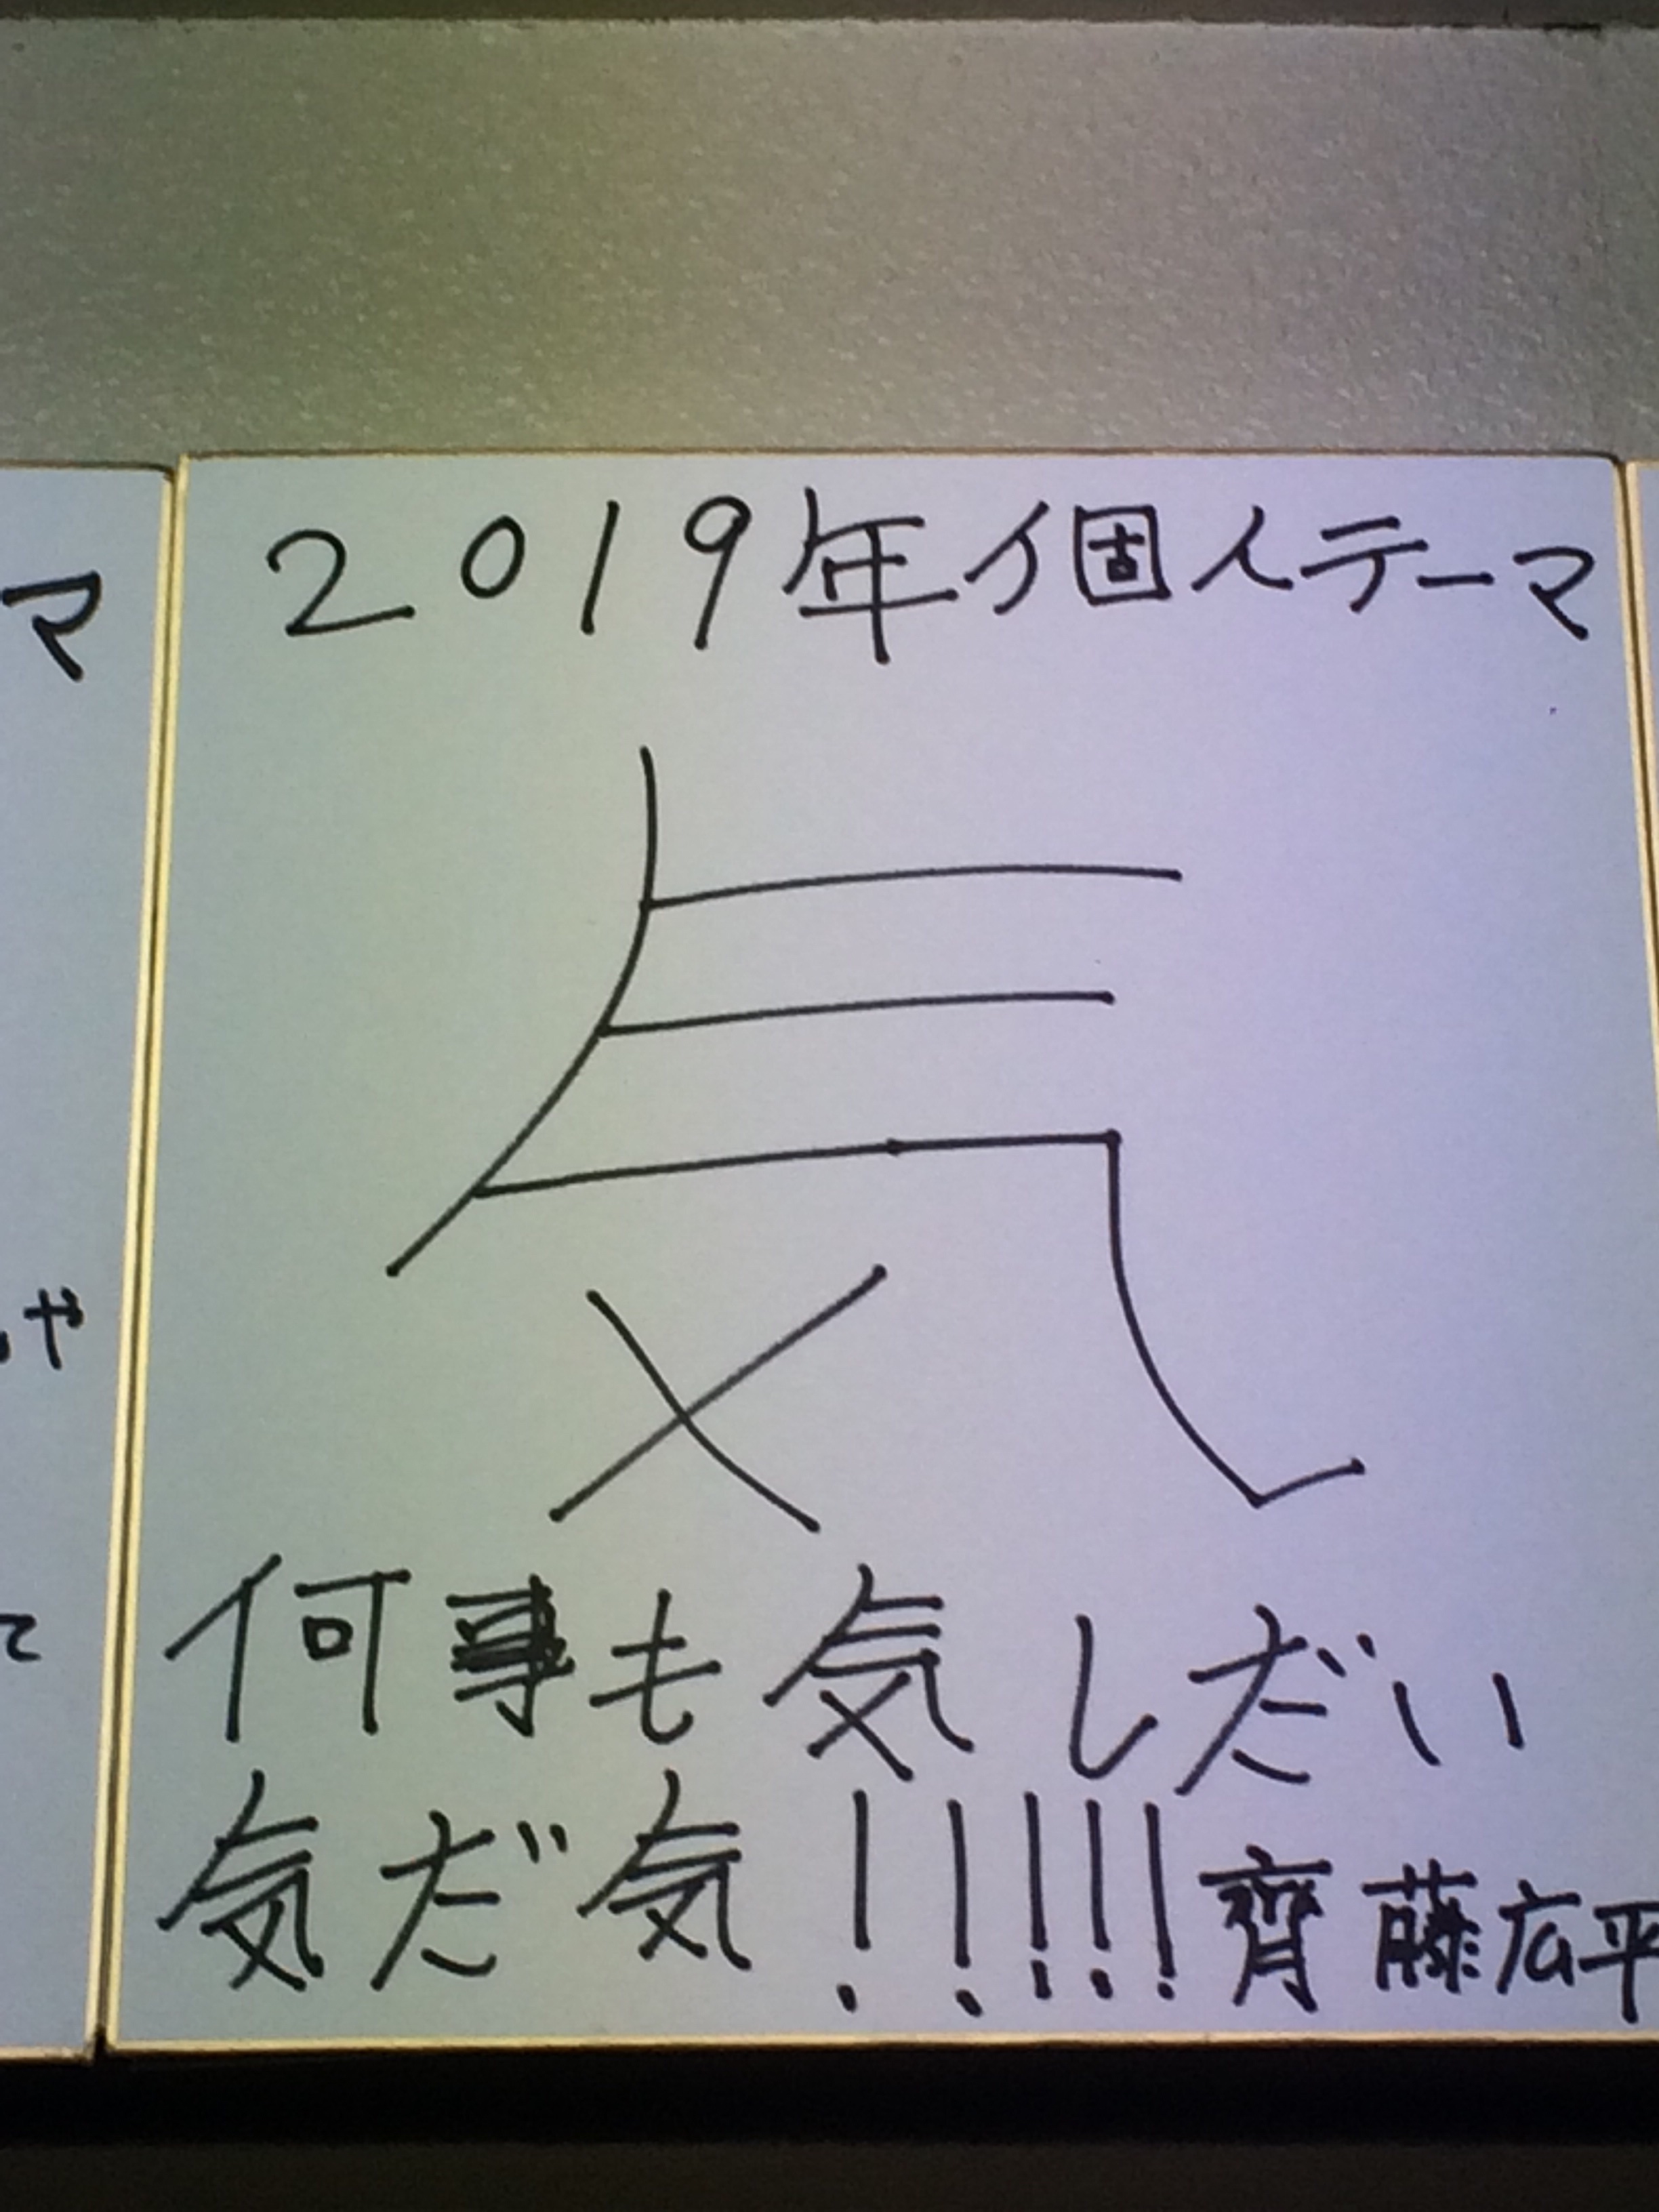 2019年個人テーマ
気
何事も気しだい
気だ気!!!!! 齊藤広平
マ
や
て